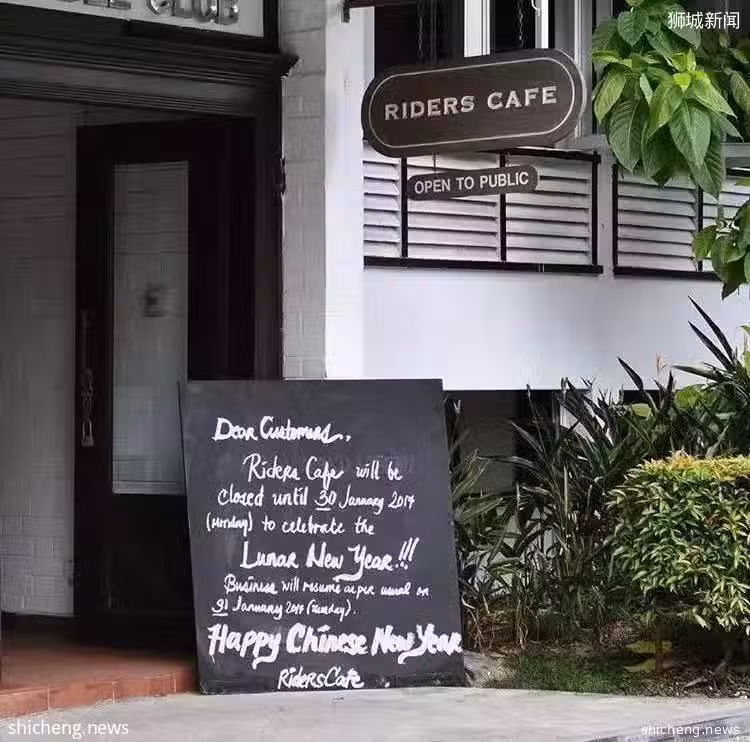 狮城新闻
CLUB
RIDERS CAFE
OPEN TO PUBLIC
Dear Customers,
Riders Cafe will be
closed until 30 January 2017
(Monday) to celebrate the
Lunar New Year!!!
Business will resume as per usual on
31 January 2017 (Tuesday).
Happy Chinese New Year
Riders Cafe
shicheng.news
shicheng.news